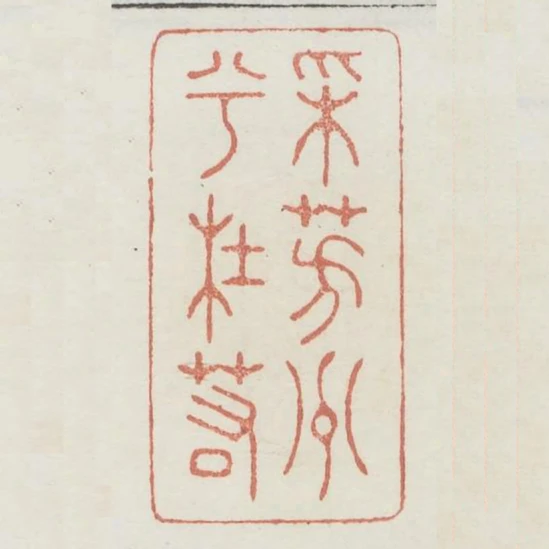 采芳州
兮杜若